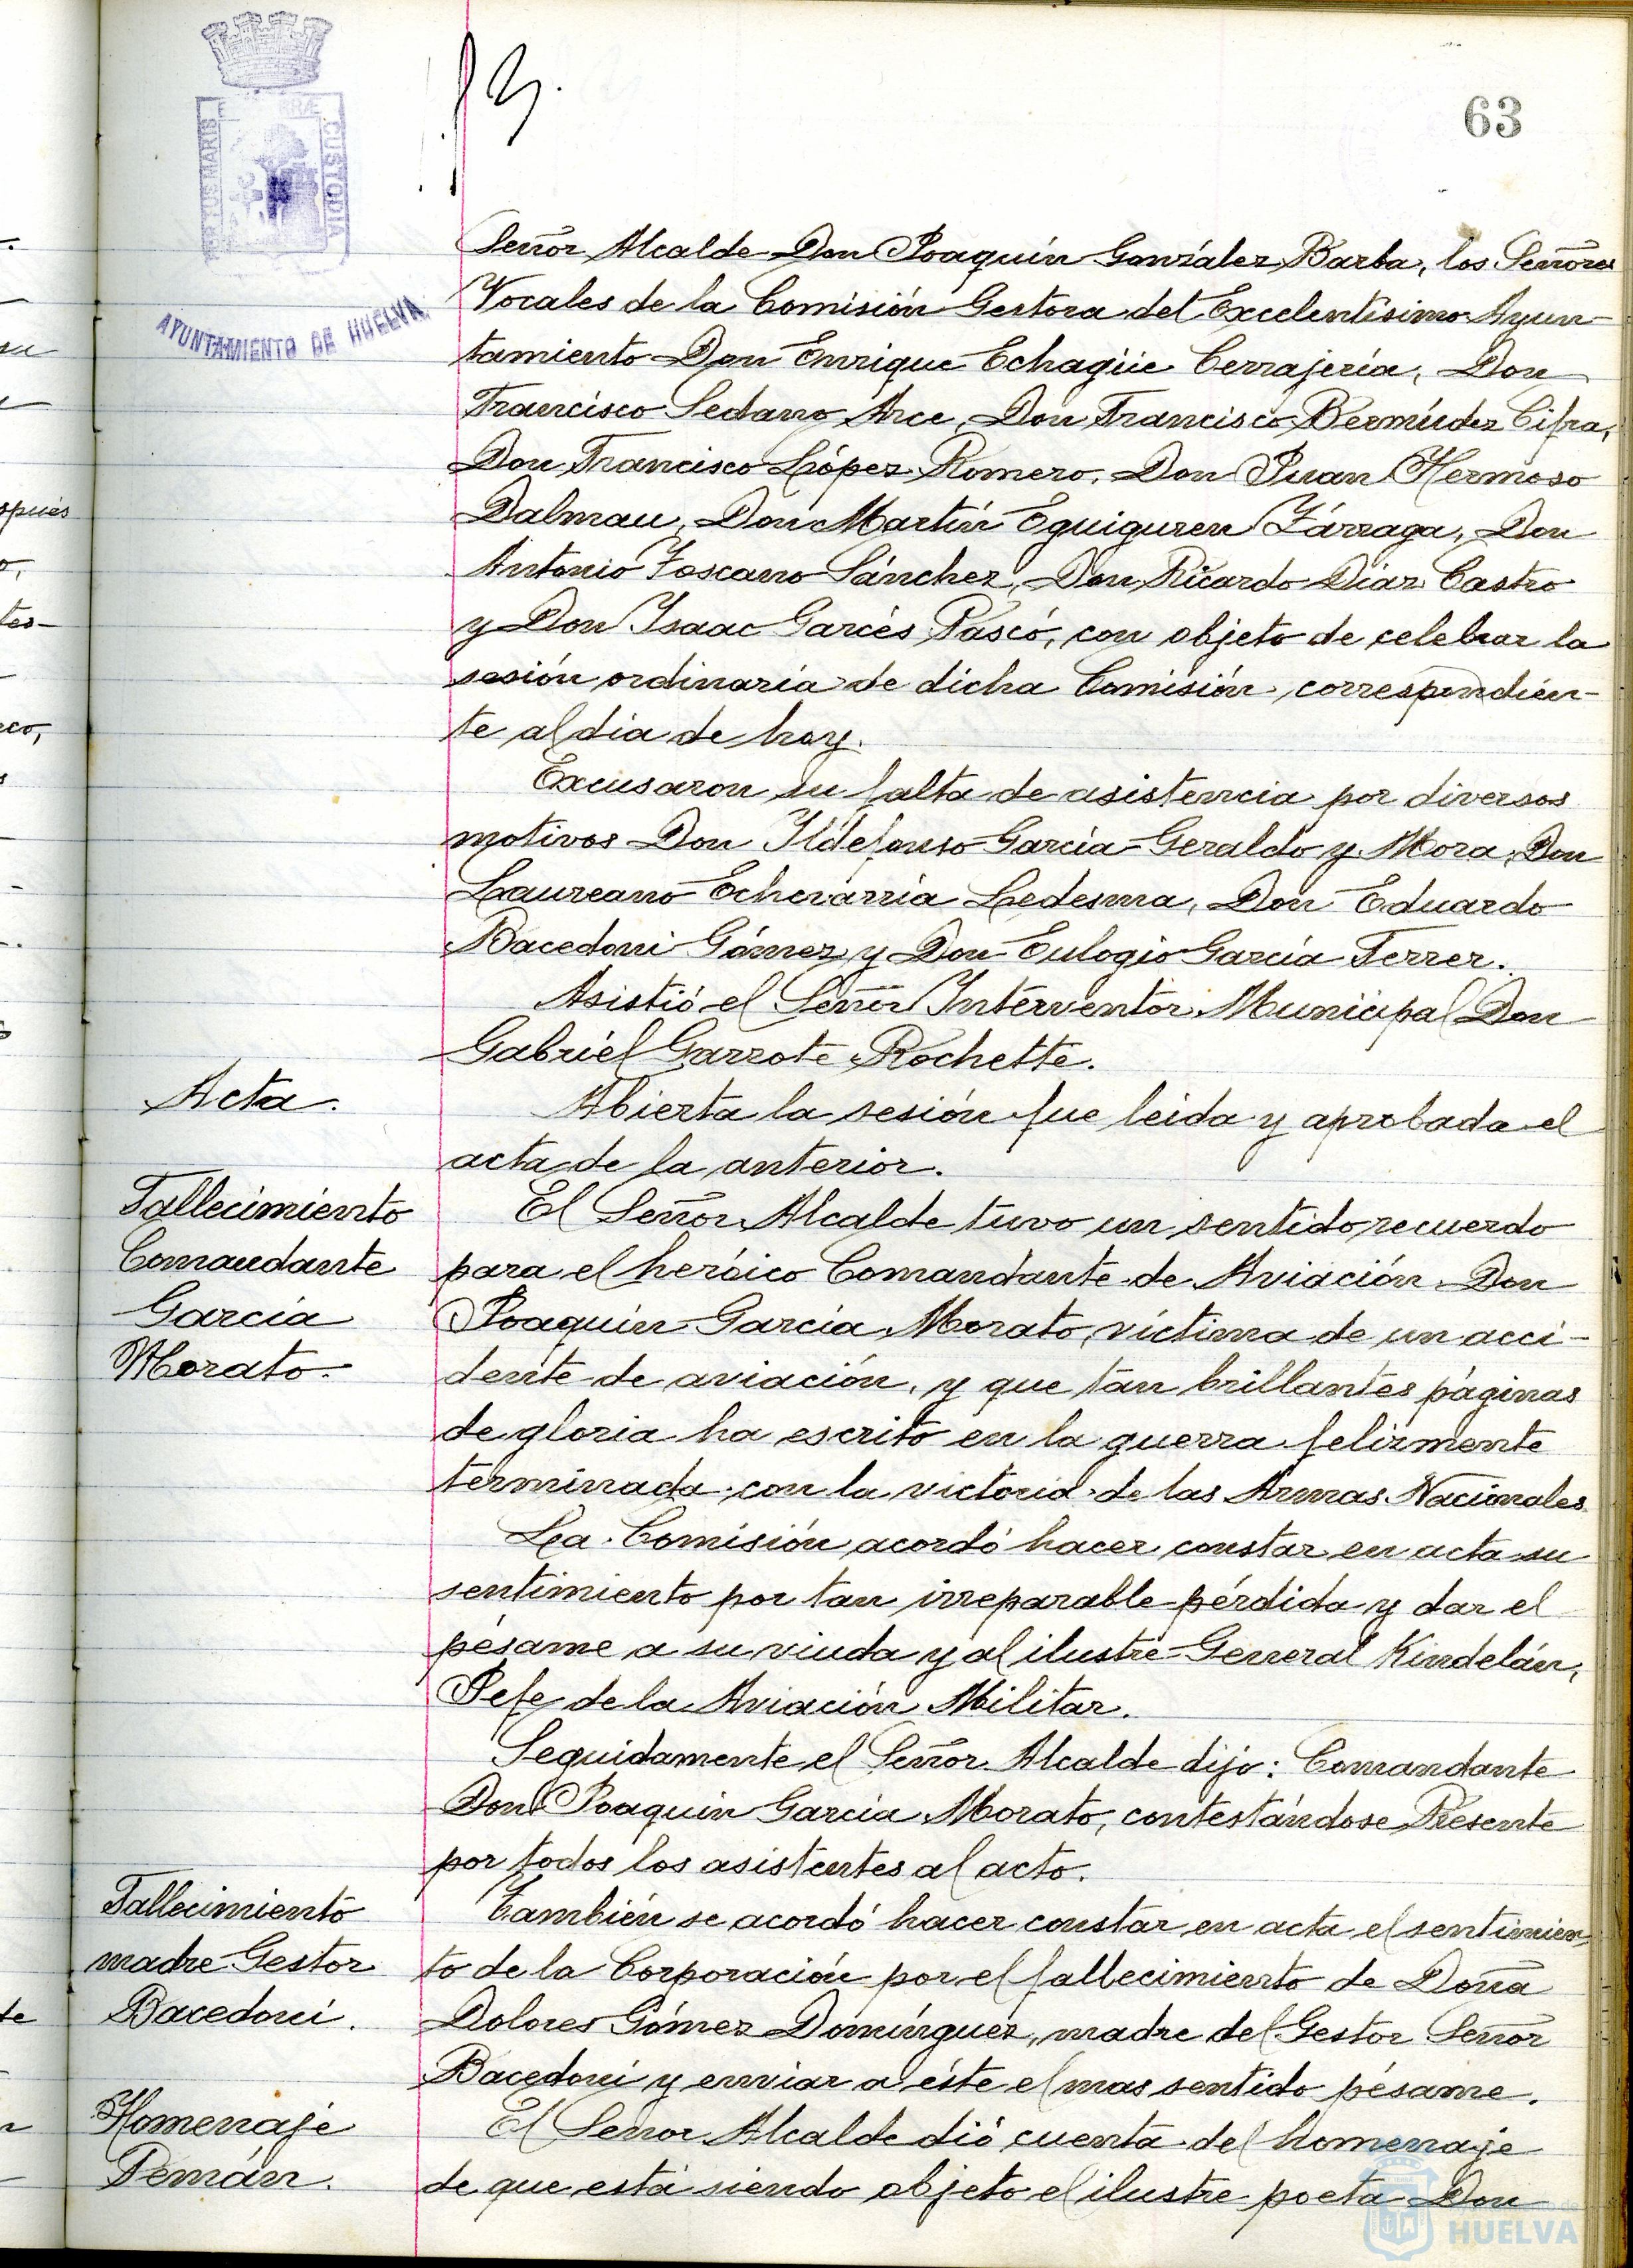 63
PORTUS MARIS
CUSTODIA
AYUNTAMIENTO DE HUELVA
Señor Alcalde Don Joaquín González Barba, los Señores
Vocales de la Comisión Gestora del Excelentísimo Ayun-
tamiento Don Enrique Echagüe Cerrajería, Don
Francisco Sedano Arce, Don Francisco Bermúdez Cifra,
Don Francisco López Romero, Don Juan Hermoso
Dalmau, Don Martín Eguiguren Zárraga, Don
Antonio Toscano Sánchez, Don Ricardo Díaz Castro
y Don Isaac Garcés Pascó, con objeto de celebrar la
sesión ordinaria de dicha Comisión, correspondien-
te al dia de hoy.
Excusaron su falta de asistencia por diversos
motivos Don Ildefonso García-Geraldo y Mora, Don
Laureano Echevarría Ledesma, Don Eduardo
Bacedoni Gómez y Don Eulogio García Ferrer.
Asistió el Señor Interventor Municipal Don
Gabriel Garrote Rochette.
Acta.
Abierta la sesión fue leida y aprobada el
acta de la anterior.
Fallecimiento
Comandante
García
Morato.
El Señor Alcalde tuvo un sentido recuerdo
para el heróico Comandante de Aviación Don
Joaquín García Morato, víctima de un acci-
dente de aviación, y que tan brillantes páginas
de gloria ha escrito en la guerra felizmente
terminada con la victoria de las Armas Nacionales
La Comisión acordó hacer constar en acta su
sentimiento por tan irreparable pérdida y dar el
pésame a su viuda y al ilustre General Kindelán,
Jefe de la Aviación Militar.
Seguidamente el Señor Alcalde dijo: Comandante
Don Joaquín García Morato, contestándose Presente
por todos los asistentes al acto.
Fallecimiento
madre Gestor
Bacedoni.
También se acordó hacer constar en acta el sentimien
to de la Corporación por el fallecimiento de Doña
Dolores Gómez Domínguez, madre del Gestor Señor
Bacedoni y enviar a éste el mas sentido pésame.
Homenaje
Pemán.
El Señor Alcalde dió cuenta del homenaje
de que está siendo objeto el ilustre poeta Don
HUELVA